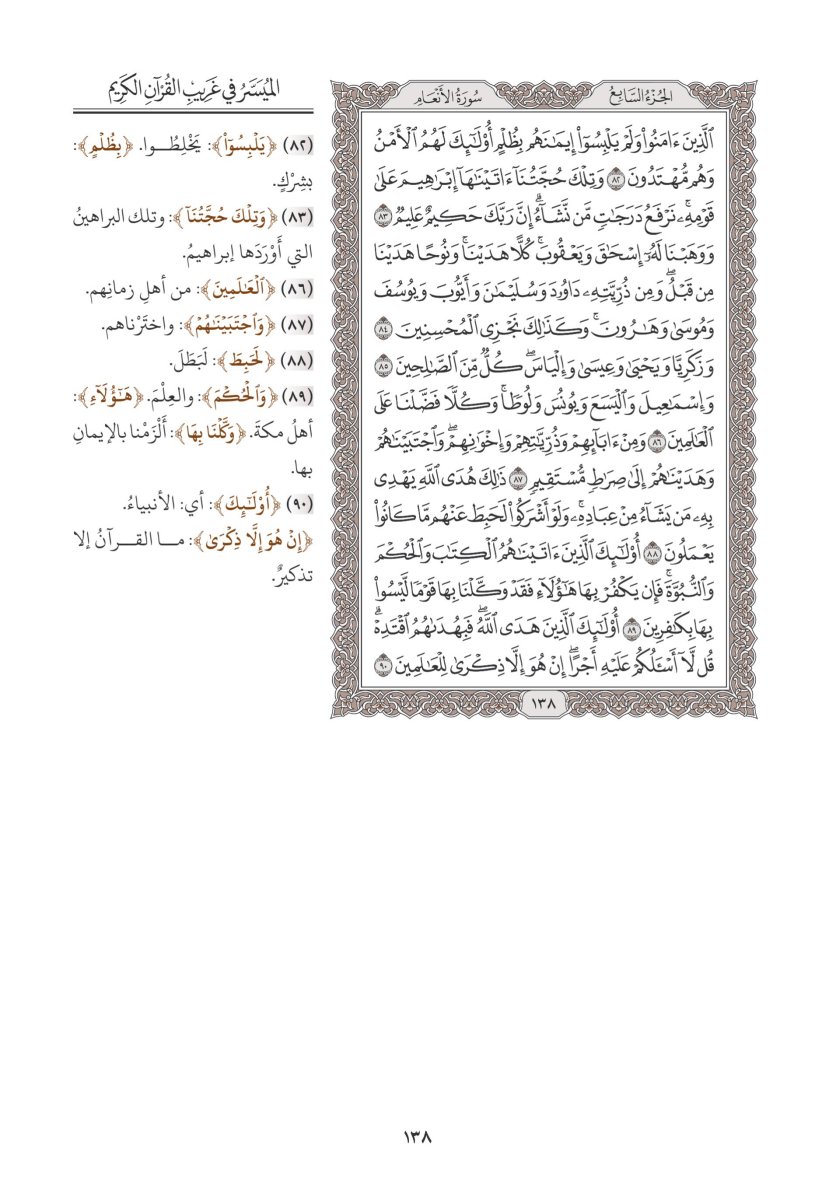 الجُزْءُ السَّابِعُ
سُورَةُ الأَنْعَامِ
ٱلَّذِينَ ءَامَنُواْ وَلَمۡ يَلۡبِسُوٓاْ إِيمَٰنَهُم بِظُلۡمٍ أُوْلَٰٓئِكَ لَهُمُ ٱلۡأَمۡنُ
وَهُم مُّهۡتَدُونَ ٨٢ وَتِلۡكَ حُجَّتُنَآ ءَاتَيۡنَٰهَآ إِبۡرَٰهِيمَ عَلَىٰ
قَوۡمِهِۦۚ نَرۡفَعُ دَرَجَٰتٖ مَّن نَّشَآءُۗ إِنَّ رَبَّكَ حَكِيمٌ عَلِيمٞ ٨٣
وَوَهَبۡنَا لَهُۥٓ إِسۡحَٰقَ وَيَعۡقُوبَۚ كُلًّا هَدَيۡنَاۚ وَنُوحًا هَدَيۡنَا
مِن قَبۡلُۖ وَمِن ذُرِّيَّتِهِۦ دَاوُۥدَ وَسُلَيۡمَٰنَ وَأَيُّوبَ وَيُوسُفَ
وَمُوسَىٰ وَهَٰرُونَۚ وَكَذَٰلِكَ نَجۡزِي ٱلۡمُحۡسِنِينَ ٨٤
وَزَكَرِيَّا وَيَحۡيَىٰ وَعِيسَىٰ وَإِلۡيَاسَۖ كُلّٞ مِّنَ ٱلصَّٰلِحِينَ ٨٥
وَإِسۡمَٰعِيلَ وَٱلۡيَسَعَ وَيُونُسَ وَلُوطٗاۚ وَكُلّٗا فَضَّلۡنَا عَلَى
ٱلۡعَٰلَمِينَ ٨٦ وَمِنۡ ءَابَآئِهِمۡ وَذُرِّيَّٰتِهِمۡ وَإِخۡوَٰنِهِمۡۖ وَٱجۡتَبَيۡنَٰهُمۡ
وَهَدَيۡنَٰهُمۡ إِلَىٰ صِرَٰطٖ مُّسۡتَقِيمٖ ٨٧ ذَٰلِكَ هُدَى ٱللَّهِ يَهۡدِي
بِهِۦ مَن يَشَآءُ مِنۡ عِبَادِهِۦۚ وَلَوۡ أَشۡرَكُواْ لَحَبِطَ عَنۡهُم مَّا كَانُواْ
يَعۡمَلُونَ ٨٨ أُوْلَٰٓئِكَ ٱلَّذِينَ ءَاتَيۡنَٰهُمُ ٱلۡكِتَٰبَ وَٱلۡحُكۡمَ
وَٱلنُّبُوَّةَۚ فَإِن يَكۡفُرۡ بِهَا هَٰٓؤُلَآءِ فَقَدۡ وَكَّلۡنَا بِهَا قَوۡمٗا لَّيۡسُواْ
بِهَا بِكَٰفِرِينَ ٨٩ أُوْلَٰٓئِكَ ٱلَّذِينَ هَدَى ٱللَّهُۖ فَبِهُدَىٰهُمُ ٱقۡتَدِهۡۗ
قُل لَّآ أَسۡـَٔلُكُمۡ عَلَيۡهِ أَجۡرًاۖ إِنۡ هُوَ إِلَّا ذِكۡرَىٰ لِلۡعَٰلَمِينَ ٩٠
١٣٨
المُيَسَّرُ فِي غَرِيبِ القُرْآنِ الكَرِيمِ
(٨٢) ﴿يَلۡبِسُوٓاْ﴾: يَخْلِطُوا. ﴿بِظُلۡمٍ﴾:
بشِرْكٍ.
(٨٣) ﴿وَتِلۡكَ حُجَّتُنَآ﴾: وتلك البراهينُ
التي أَوْرَدَها إبراهيمُ.
(٨٦) ﴿ٱلۡعَٰلَمِينَ﴾: من أهلِ زمانِهم.
(٨٧) ﴿وَٱجۡتَبَيۡنَٰهُمۡ﴾: واختَرْناهم.
(٨٨) ﴿لَحَبِطَ﴾: لَبَطَلَ.
(٨٩) ﴿وَٱلۡحُكۡمَ﴾: والعِلْمَ. ﴿هَٰٓؤُلَآءِ﴾:
أهلُ مكةَ. ﴿وَكَّلۡنَا بِهَا﴾: أَلْزَمْنا بالإيمانِ
بها.
(٩٠) ﴿أُوْلَٰٓئِكَ﴾: أي: الأنبياءُ.
﴿إِنۡ هُوَ إِلَّا ذِكۡرَىٰ﴾: ما القرآنُ إلا
تذكيرٌ.
١٣٨